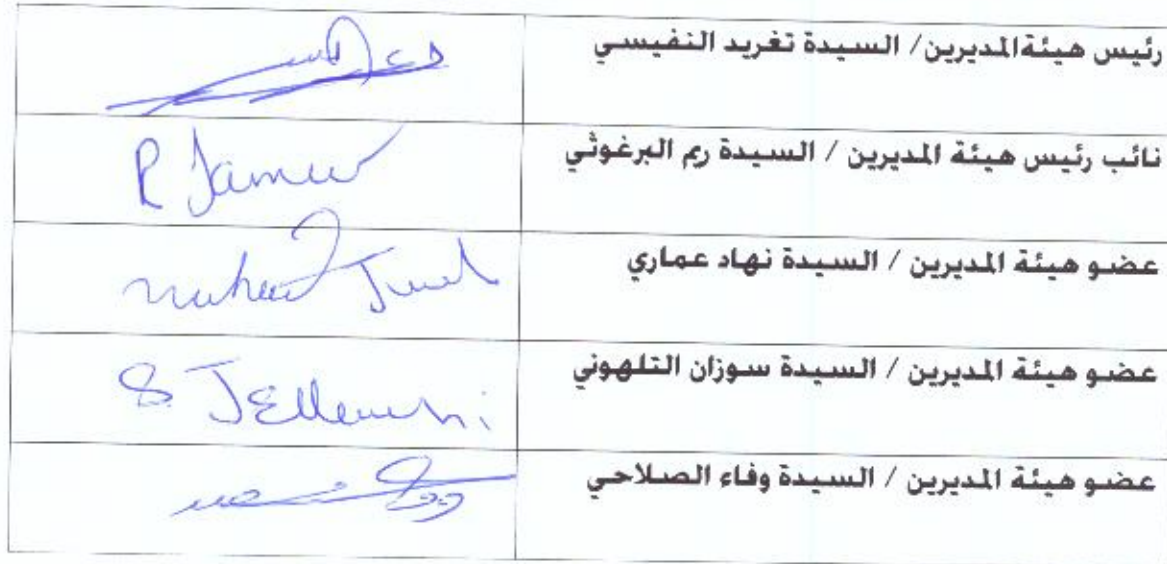 رئيس هيئةالمديرين/ السيدة تغريد النفيسي
نائب رئيس هيئة المديرين / السيدة ريم البرغوثي
عضو هيئة المديرين / السيدة نهاد عماري
عضو هيئة المديرين / السيدة سوزان التلهوني
عضو هيئة المديرين / السيدة وفاء الصلاحي